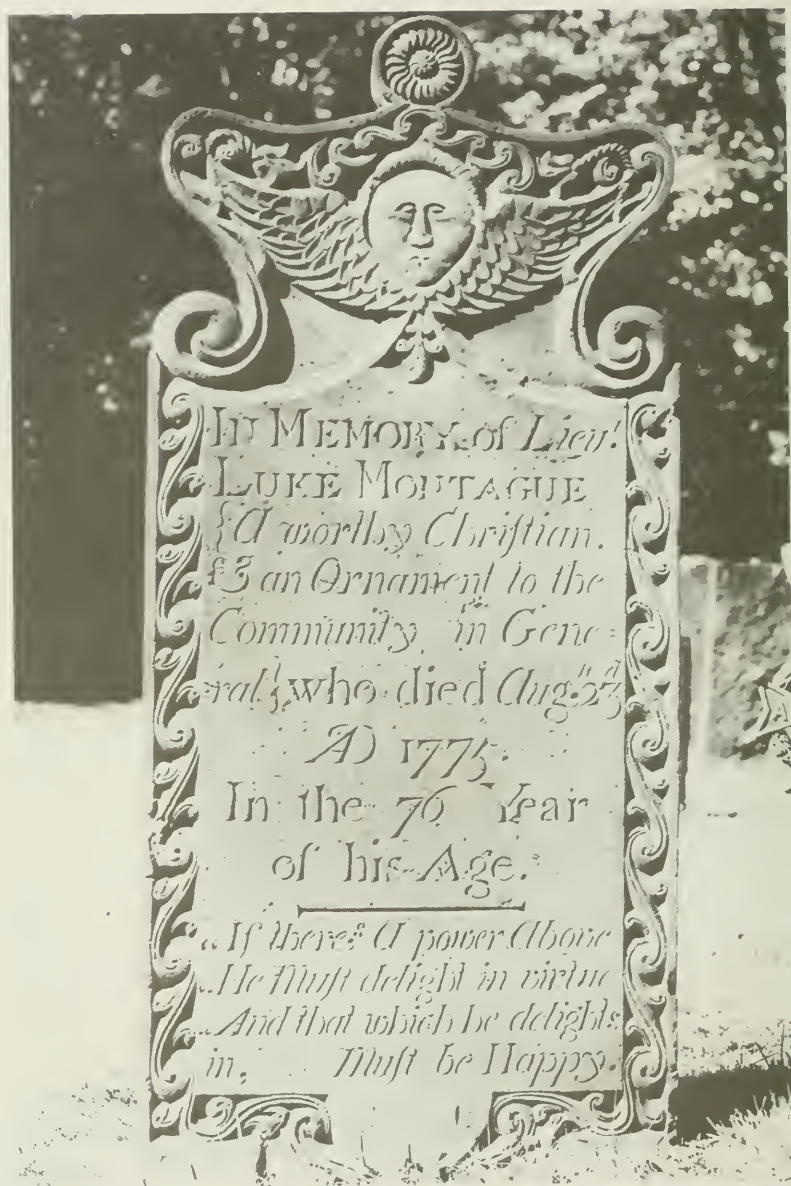 IN MEMORY of Lieu.t
LUKE MONTAGUE
{A worthy Chriſtian.
& an Ornament to the
Community, in Gene=
ral} who died Aug. 23d
AD 1775.
In the 76 Year
of his Age.
„If there's A power Above
„He Muſt delight in virtue
„And that which he delights
in, Muſt be Happy.